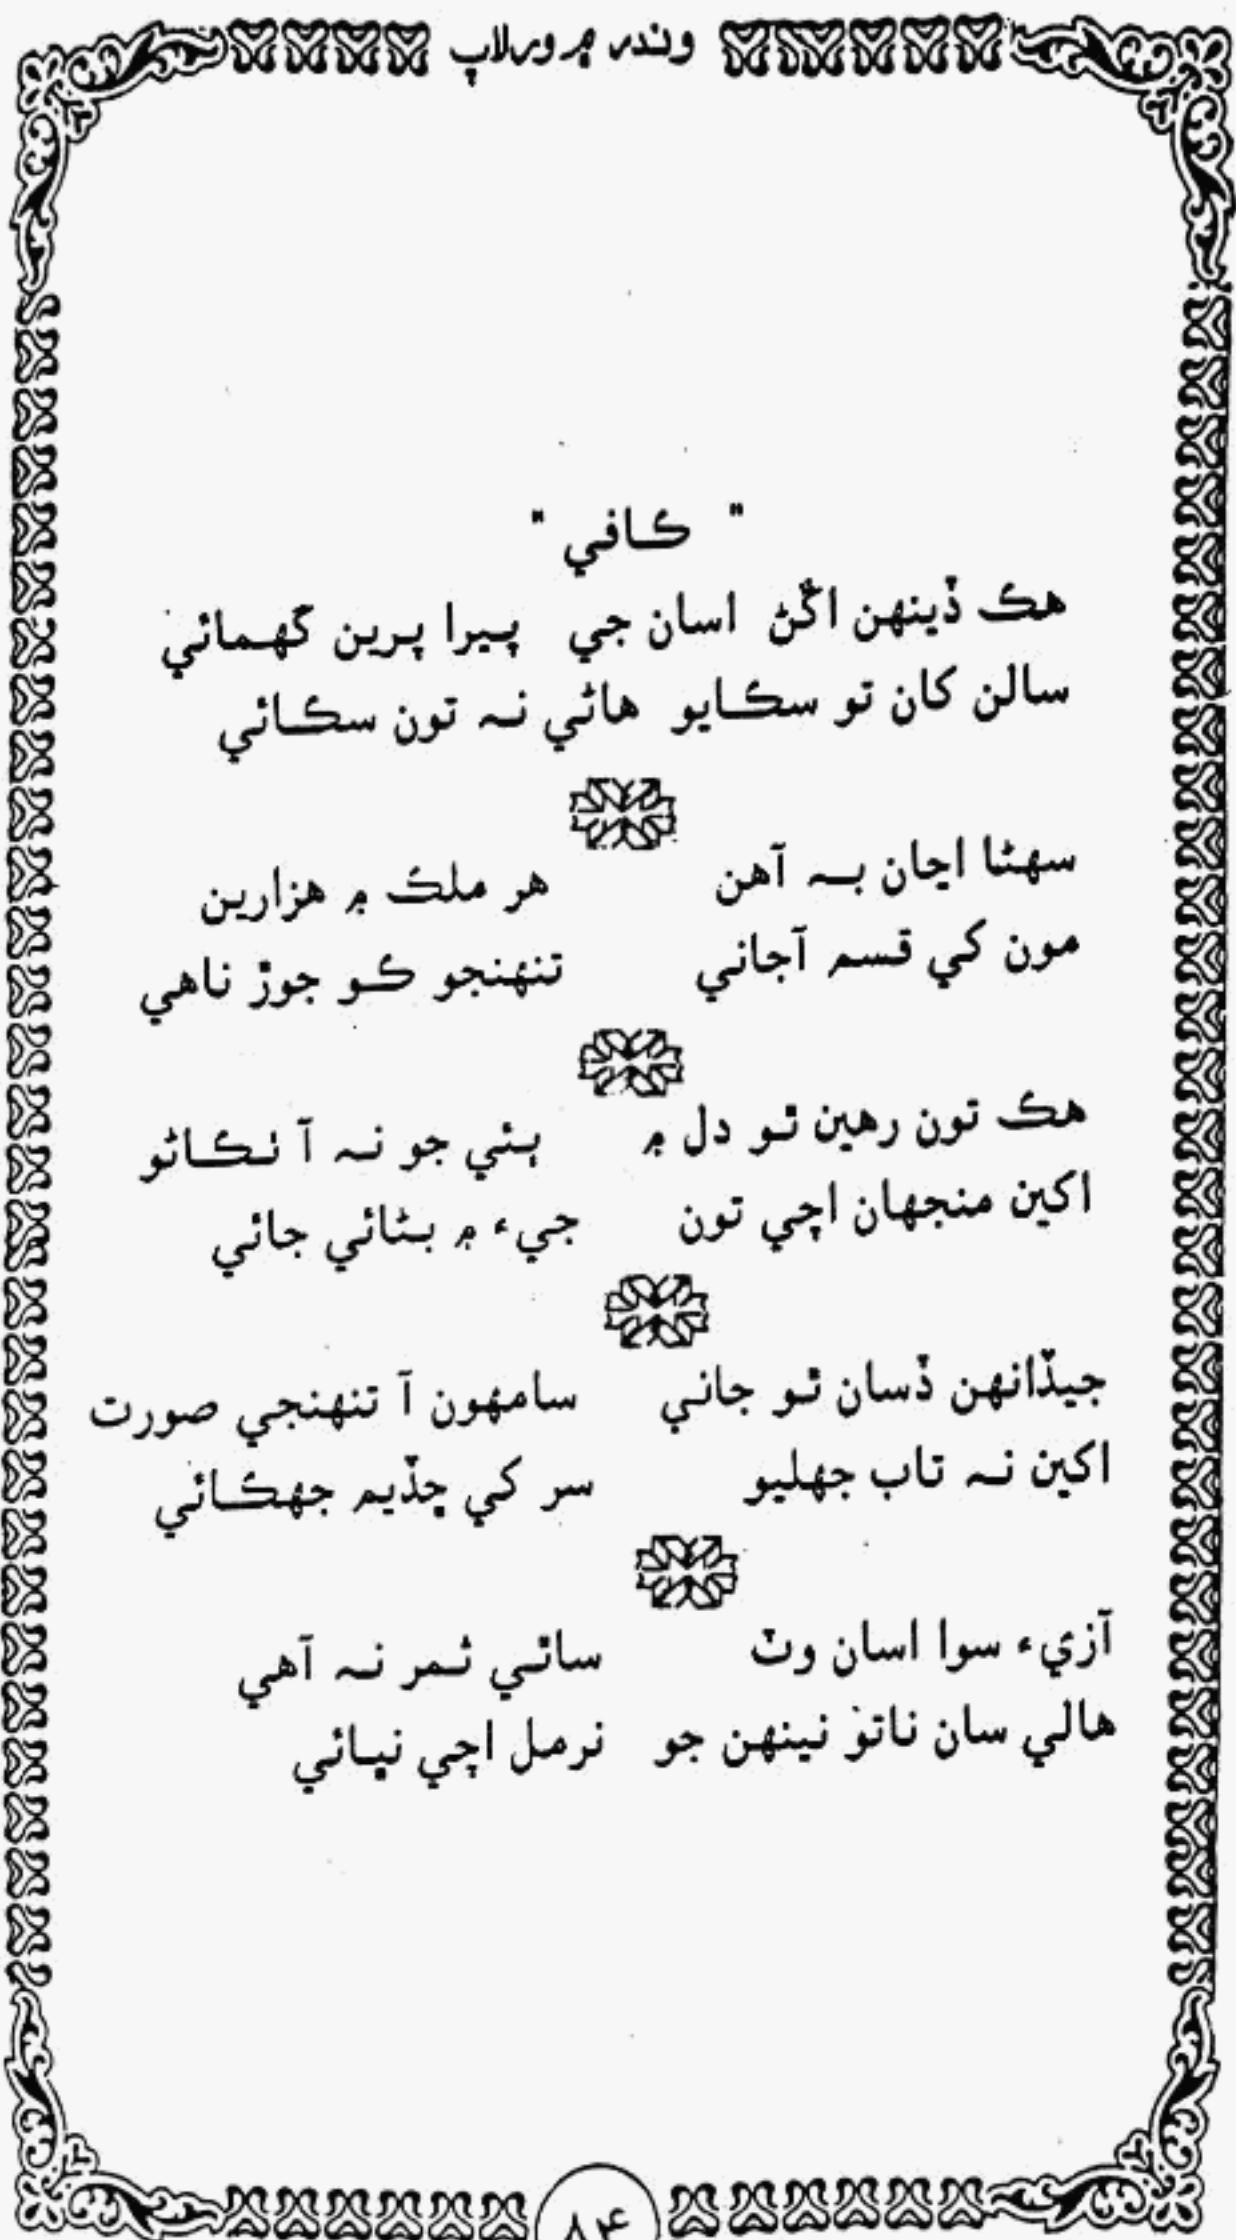 وندر ۾ ورلاپ
" ڪافي "
هڪ ڏينهن اڱڻ اسان جي پيرا پرين گھمائي
سالن کان تو سڪايو هاڻي نہ تون سڪائي
سهڻا اڃان بہ آهن هر ملڪ ۾ هزارين
مون کي قسم آجاني تنهنجو ڪو جوڙ ناهي
هڪ تون رهين ٿو دل ۾ ٻئي جو نہ آ ٺڪاڻو
اکين منجهان اچي تون جيء ۾ بڻائي جائي
جيڏانهن ڏسان ٿو جاني سامهون آ تنهنجي صورت
اکين نہ تاب جهليو سر کي ڇڏيم جهڪائي
آزيء سوا اسان وٽ ساٿي ثمر نہ آهي
هالي سان ناتو نينهن جو نرمل اچي نڀائي
۸۴